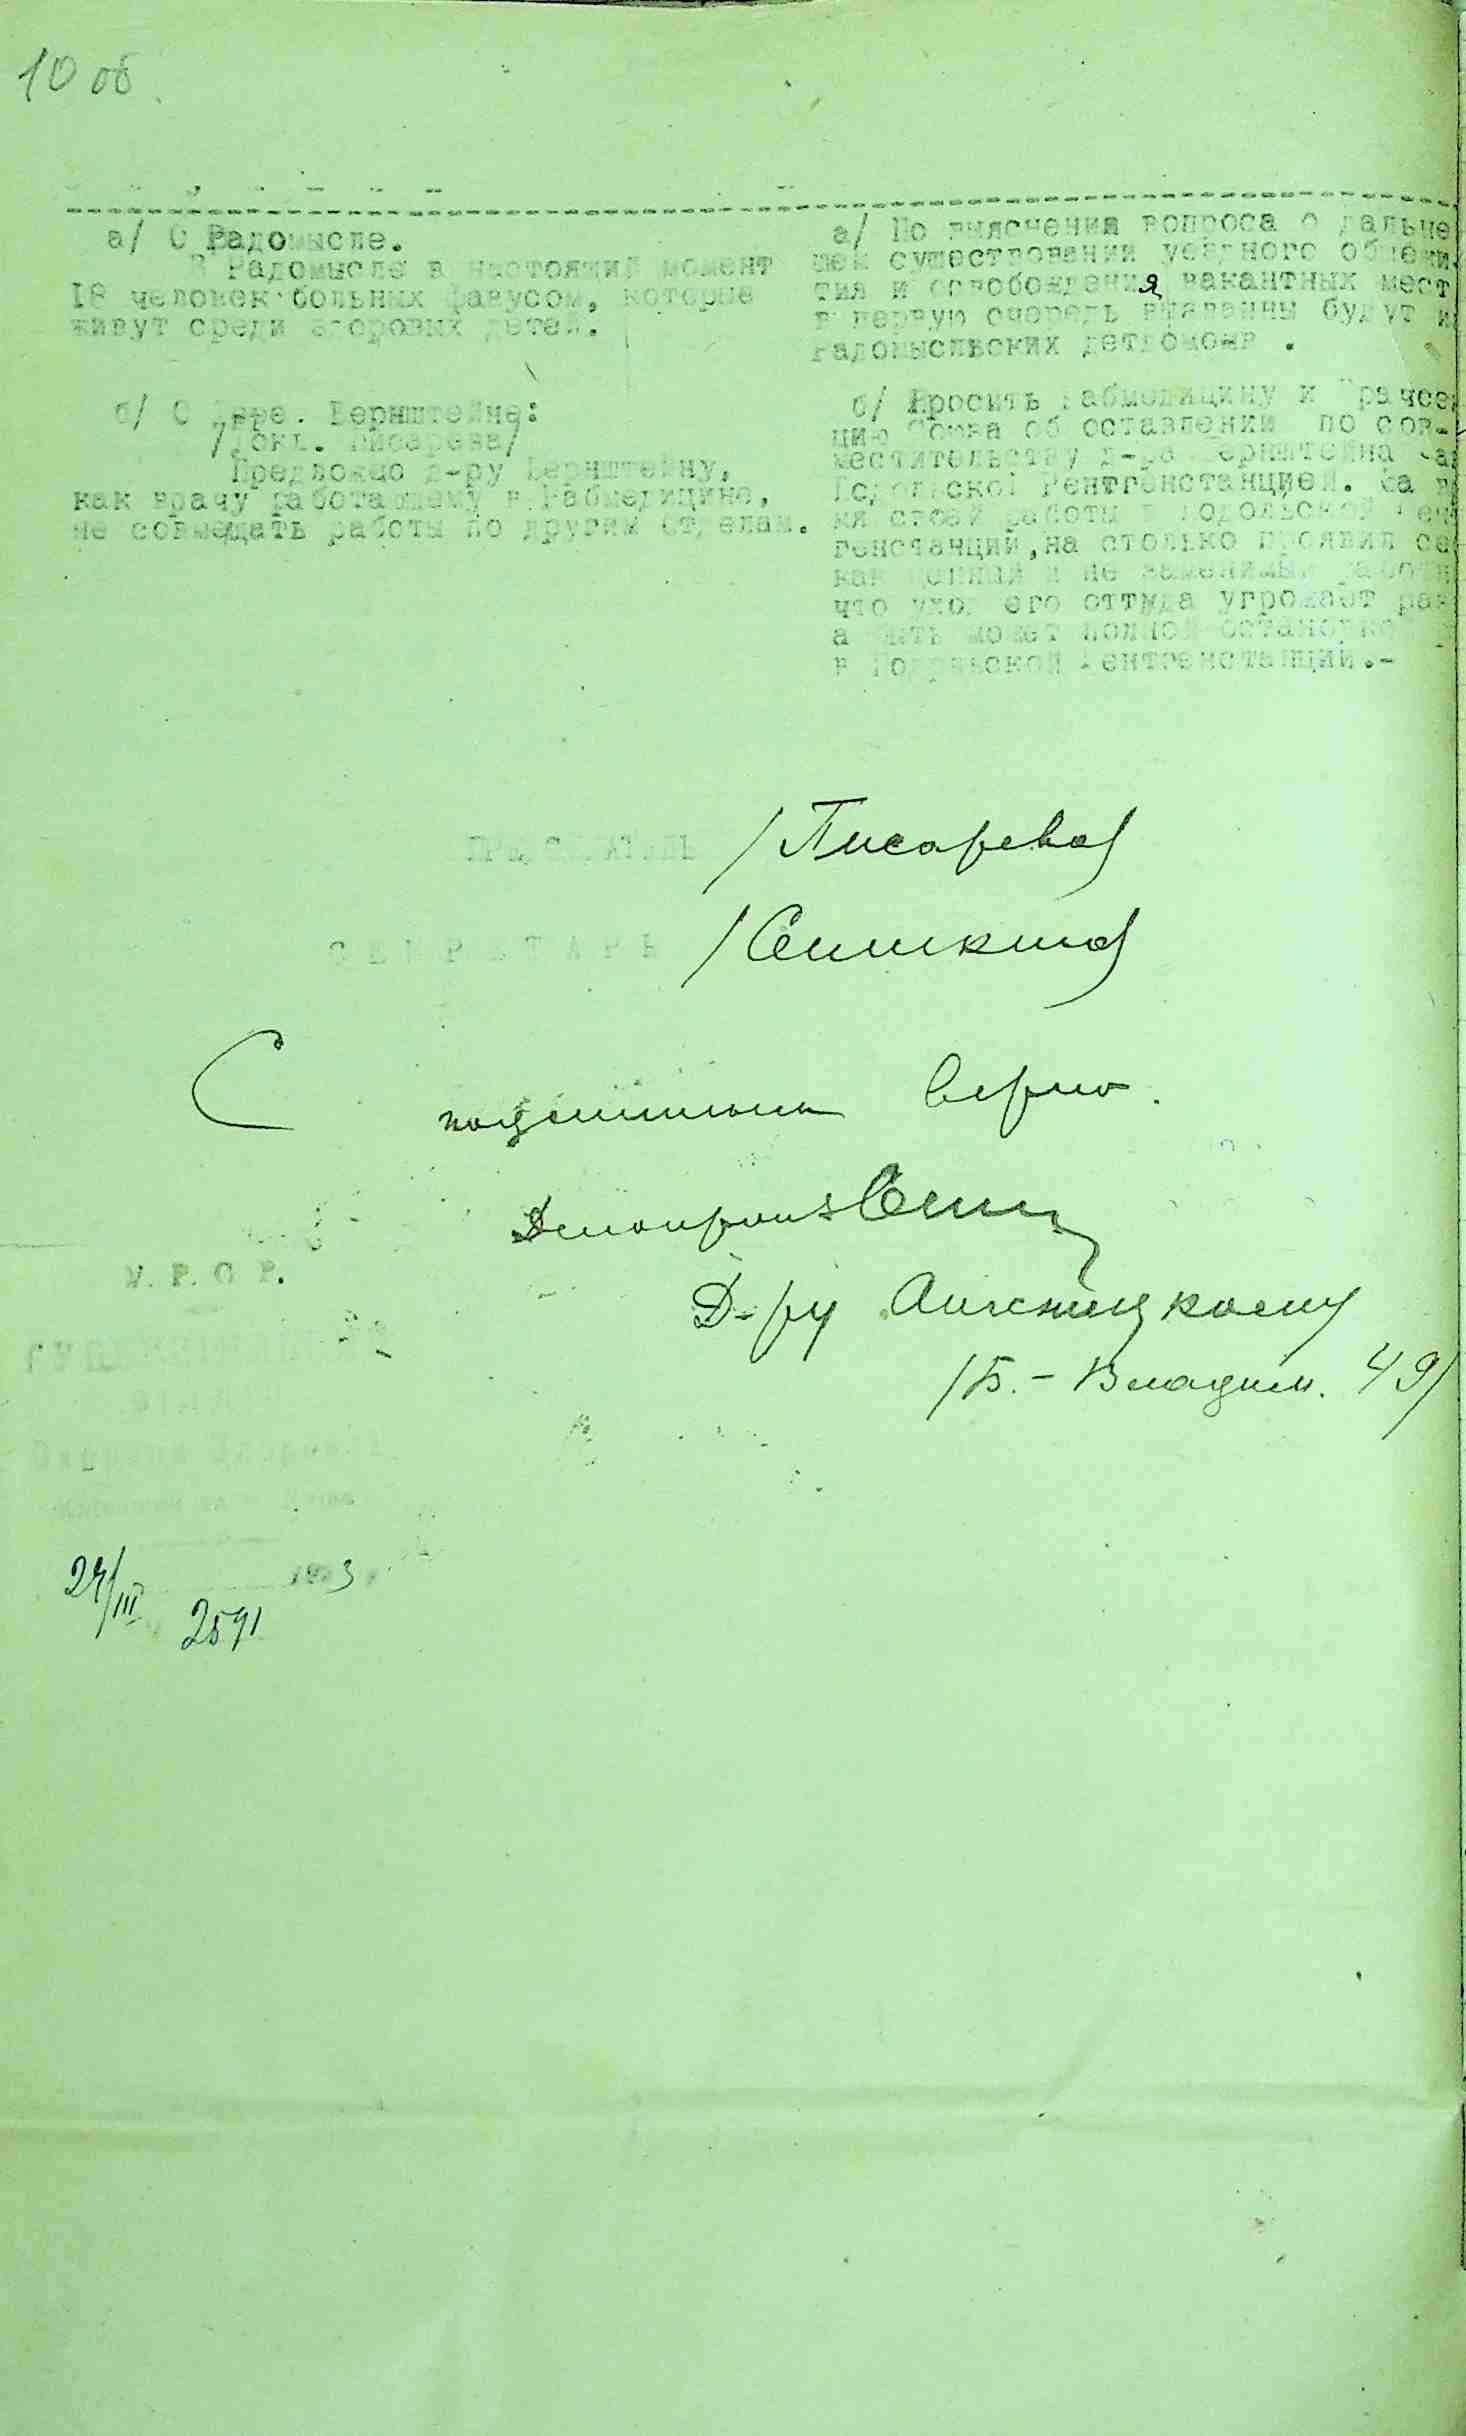 10 об
а/ О Радомысле.
В Радомысле в настоящий момент
18 человек больных фавусом, которые
живут среди здоровых детей.
б/ О Бернштейне:
/Докл. Писарева/
Предложено д-ру Бернштейну,
как врачу работающему в Рабмедицине,
не совмещать работы по другим отделам.
а/ По выяснения вопроса о дальне
шем существовании уездного общежи
тия и освобождения вакантных мест
в первую очередь
будут и
Радомысльских детдомов .
б/ Просить Рабмедицину и Врачсек
цию Союза об оставлении по сов-
местительству д-ра Бернштейна
Подольской Рентгенстанцией. За
мя своей работы в Подольской Рен
генстанции, на столько проявил се
как ценный и не заменимый работн
что уход его оттуда угрожает
а быть может полной остановкой
в Подольской Рентгенстанции.-
ПРЕДСЕДАТЕЛЬ /Писарева/
СЕКРЕТАРЬ
С подлинным верно.
Делопроиз
Д-ру
/Б.- Владим. 49/
У. Р. С. Р.
ГУБ
Охорони Здоров
III 1923
2591